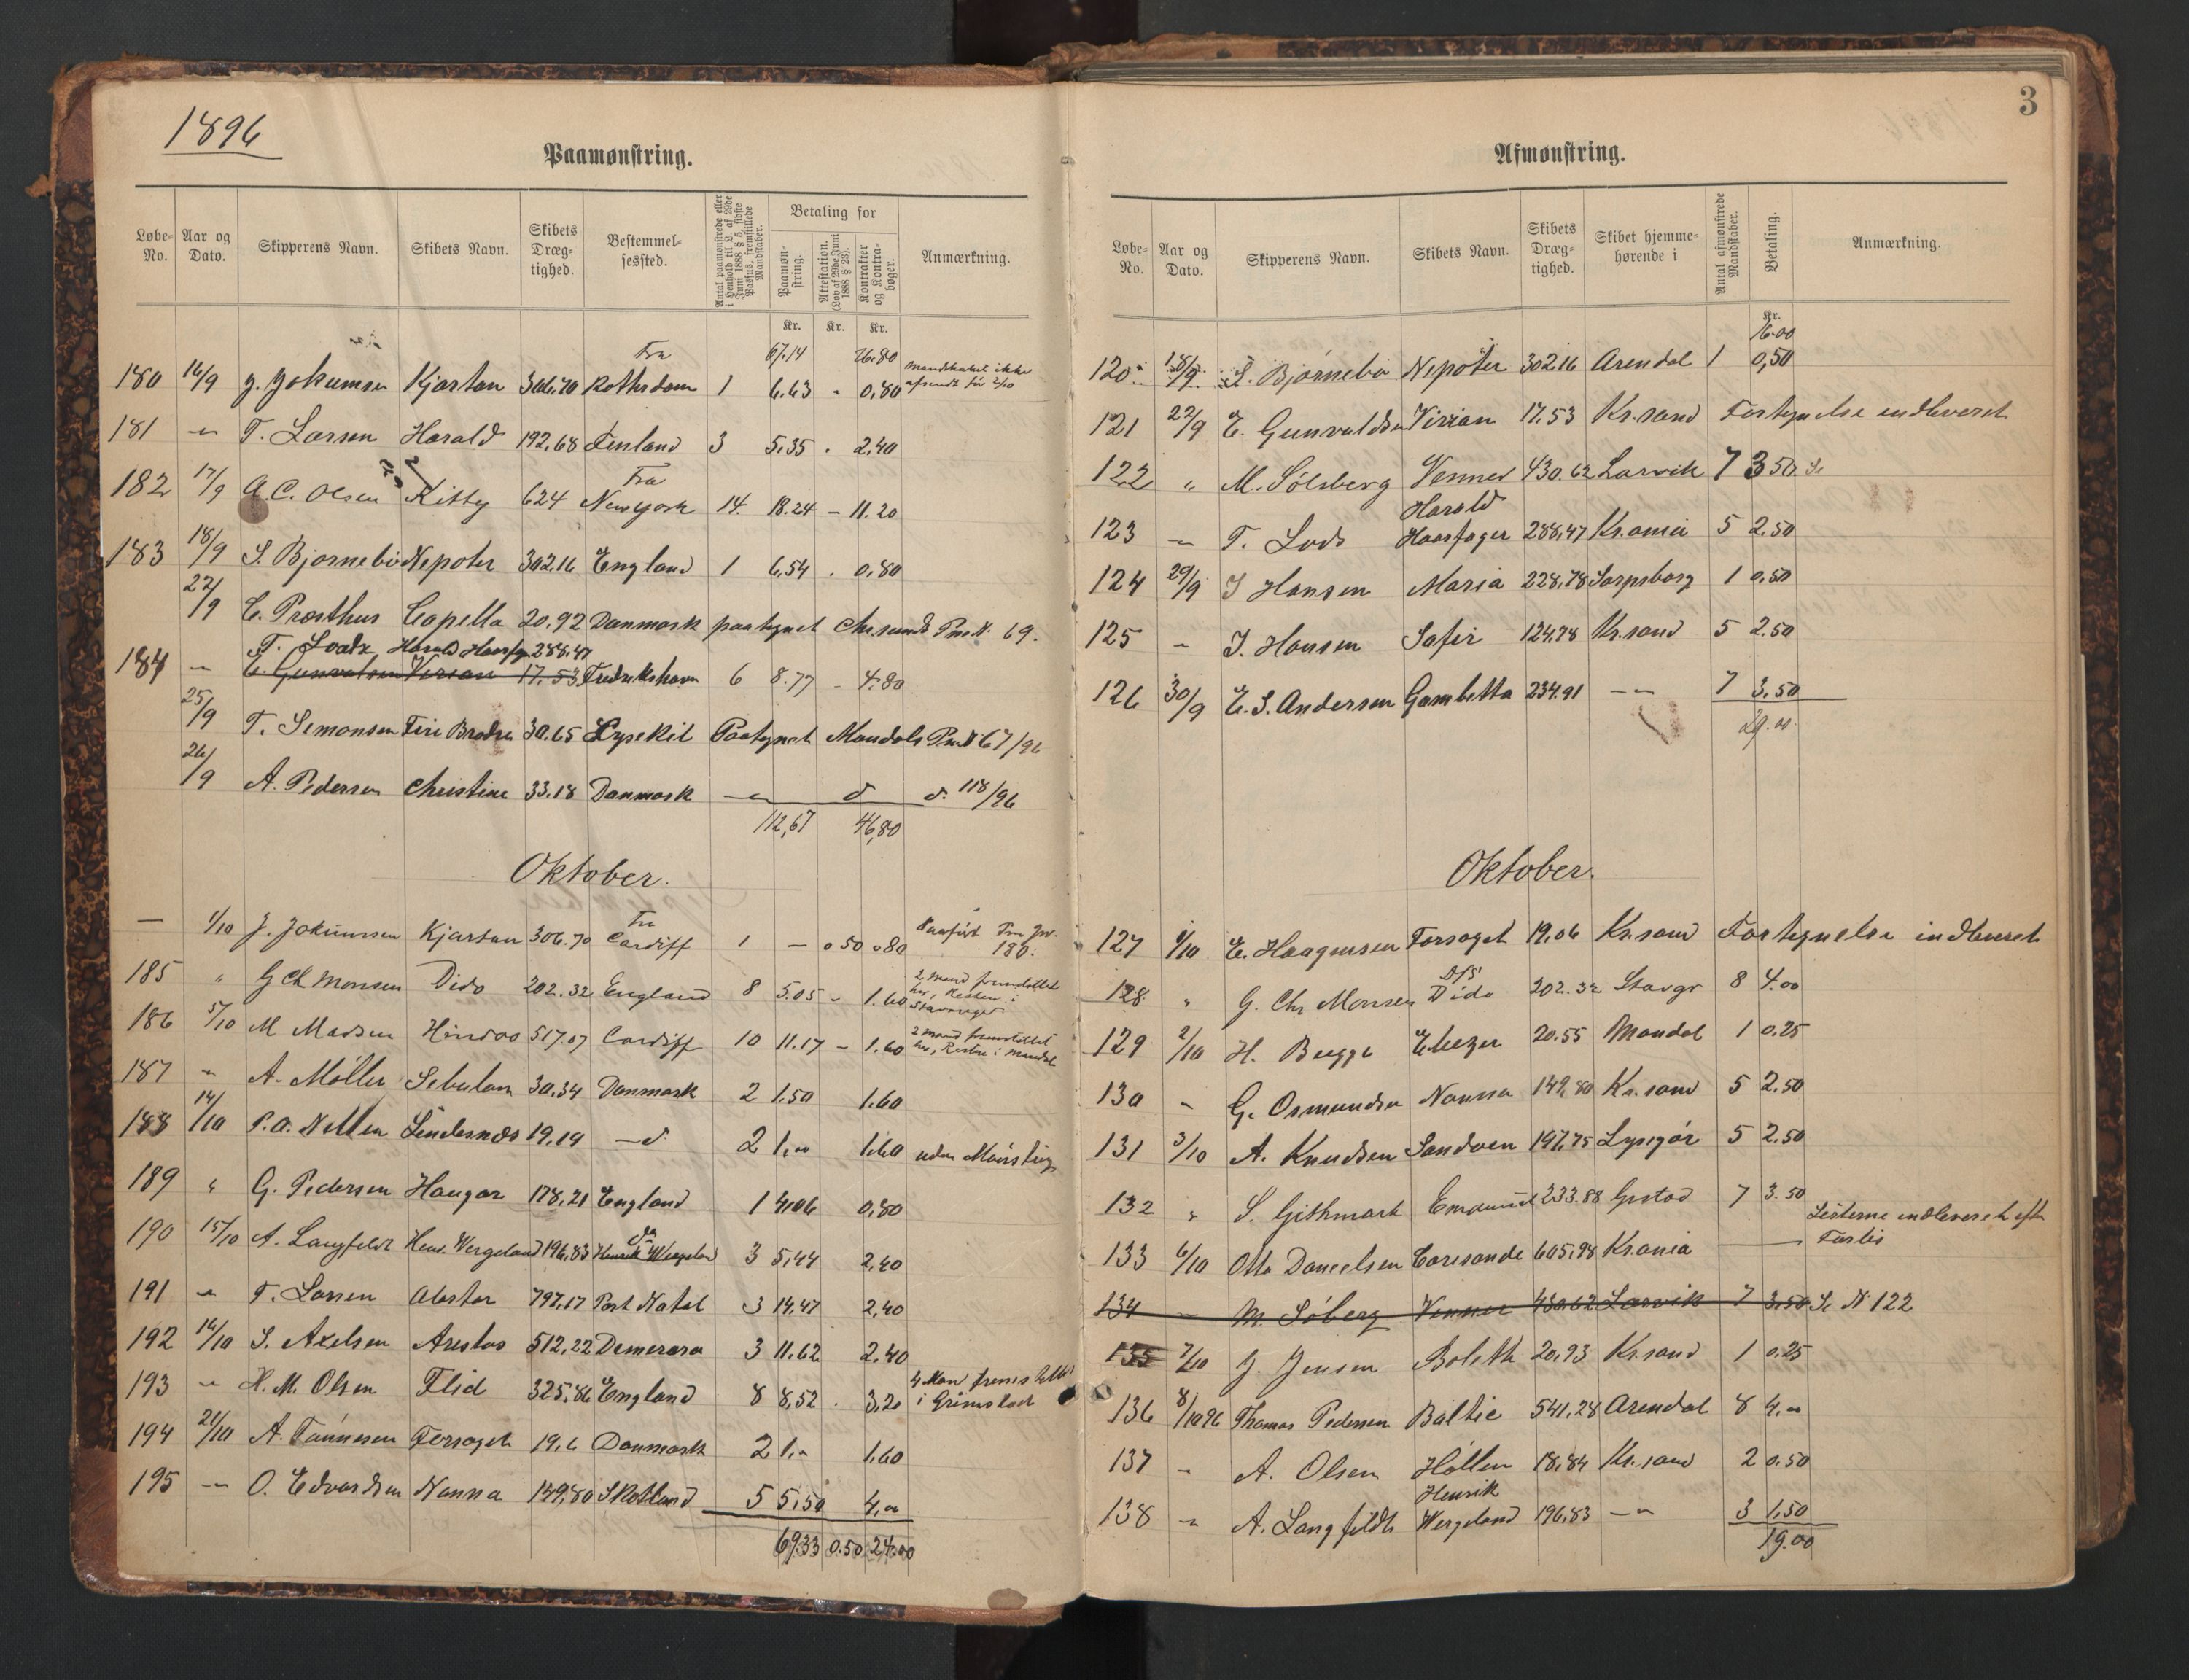 1896
Paamønstring.
Løbe-No. Aar og Dato. Skipperens Navn. Skibets Navn. Skibets Dræg-tighed. Bestemmel-sessted. Antal paamønstrede eller i Henhold til L. af 29de Juni 1888 § 5, sidste Passus, fremstillede Mandskaber. Betaling for Paamøn-string. Attestation. (Lov af 29de Juni 1888 § 28). Kontrakter og Kontra-bøger. Anmærkning.
Kr. Kr. Kr.
Fra 67.14 26.80
180 16/9 J. Jokumsen Kjartan 306,70 Rotterdam 1 6.63 - 0,80 mandskabet ikke afsendt før 1/10
181 " T. Larsen Harald 192,68 Finland 3 5.35 . 2,40
Fra
182 17/9 A.C. Olsen Kitty 624 New York 14. 18.24 - 11.20
183 18/9 S. Bjørnebo Nepoter 302.16 England 1 6,54 . 0,80
22/9 C. Præsthus Capella 20,92 Danmark paategnet Chrsunds Pm.N. 69.
T. Lodz Harald Haarfgr 288,47
184 " E. Gunvalsen Virian 17.53 Fredrikshavn 6 8.77 - 4.80
25/9 T. Simonsen Fire Brødre 30.65 Lysekil Paategnet Mandals Pm.N 67/96
26/9 A. Pedersen Christine 33.18 Danmark " d d. 118/96
112,67 46,80
Oktober.
Fra
— 1/10 J. Jokumsen Kjartan 306.70 Cardiff 1 — 0 50 0 80 Paaført Pm Jor. 180.
185 " G Ch Monsen Dido 202.32 England 8 5.05 - 1.60 2 mand fremstillet her, Resten i Stavanger
186 5/10 M Madsen Hindoo 517.07 Cardiff 10 11.17 - 1.60 2 mand fremstillet her, Resten i Mandal
187 " A. Møller Sebulon 30,34 Danmark 2 1.50 1.60
188 14/10 P.A. Nilsen Lindernæs 19,19 — d. 2 1,00 1.60 uden Mønstring
189 " G. Pedersen Haugar 178,21 England 1 4,06 0,80
190 15/10 A. Langfeldt Henr. Wergeland 196,83 Henrik Wergeland 3 5,44 2,40
191 " T. Larsen Alastor 797,17 Port Natal 3 14,47 2,40
192 16/10 S. Axelsen Arestos 512,22 Demerara 3 11.62 2.40
193 " H. M. Olsen Flid 325,86 England 8 8,52 . 3,20 4 Man fremstillet i Grimstad
194 21/10 A. Tønnesen Forsøget 19,6 Danmark 2 1.- 1.60
195 " O. Edvardsen Nanna 149,80 Skotland 5 5,50 4,00
69.33 0.50 24.00
3
Afmønstring.
Løbe-No. Aar og Dato. Skipperens Navn. Skibets Navn. Skibets Dræg-tighed. Skibet hjemme-hørende i Antal afmønstrede Mandskaber. Betaling. Anmærkning.
Kr.
16.00
120 18/9 S. Bjørnebo Nepoter 302.16 Arendal 1 0,50
121 22/9 E. Gunvaldsen Virian 17.53 Kr.sand Fortegnelse indleveret
122 " M. Sólsberg Venner 430.62 Larvik 7 3 50
Harald
123 " T. Lods Haarfager 288,47 Kr.ania 5 2.50
124 29/9 J Hansen Maria 228,78 Sarpsborg 1 0,50
125 " J. Hansen Safir 124.78 Kr.sand 5 2.50
126 30/9 E. S. Andersen Gambetta 234.91 " 7 3.50
29.00
Oktober.
127 1/10 E. Haagensen Forsøget 19,06 Kr.sand Fortegnelse indleveret
D/S
128 " G. Chr Monsen Dido 202.32 Stavgr 8 4.00
129 2/10 H. Bugge Ebezer 20.55 Mandal 1 0.25
130 " G. Osmundsen Nanna 149,80 Kr.sand 5 2.50
131 3/10 A. Knudsen Sandøen 197,75 Lyngør 5 2.50
132 " S. Githmark Emanuel 233.88 Grstad 7 3.50
Listerne indleveret efter Farlis
133 6/10 Otto Danielsen Caresande 605,98 Kr.ania —
134 " M. Sóberg Venner 430.62 Larvik 7 3.50 Se N 122
135 7/10 J. Jensen Boleth 20,93 Kr.sand 1 0.25
136 8/10 96 Thomas Pedersen Baltic 541,28 Arendal 8 4,00
137 " A. Olsen Hållen 18,84 Kr.sand 2 0.50
Henrik
138 " A. Langfeldt Wergeland 196,83 " 3 1,50
19.00